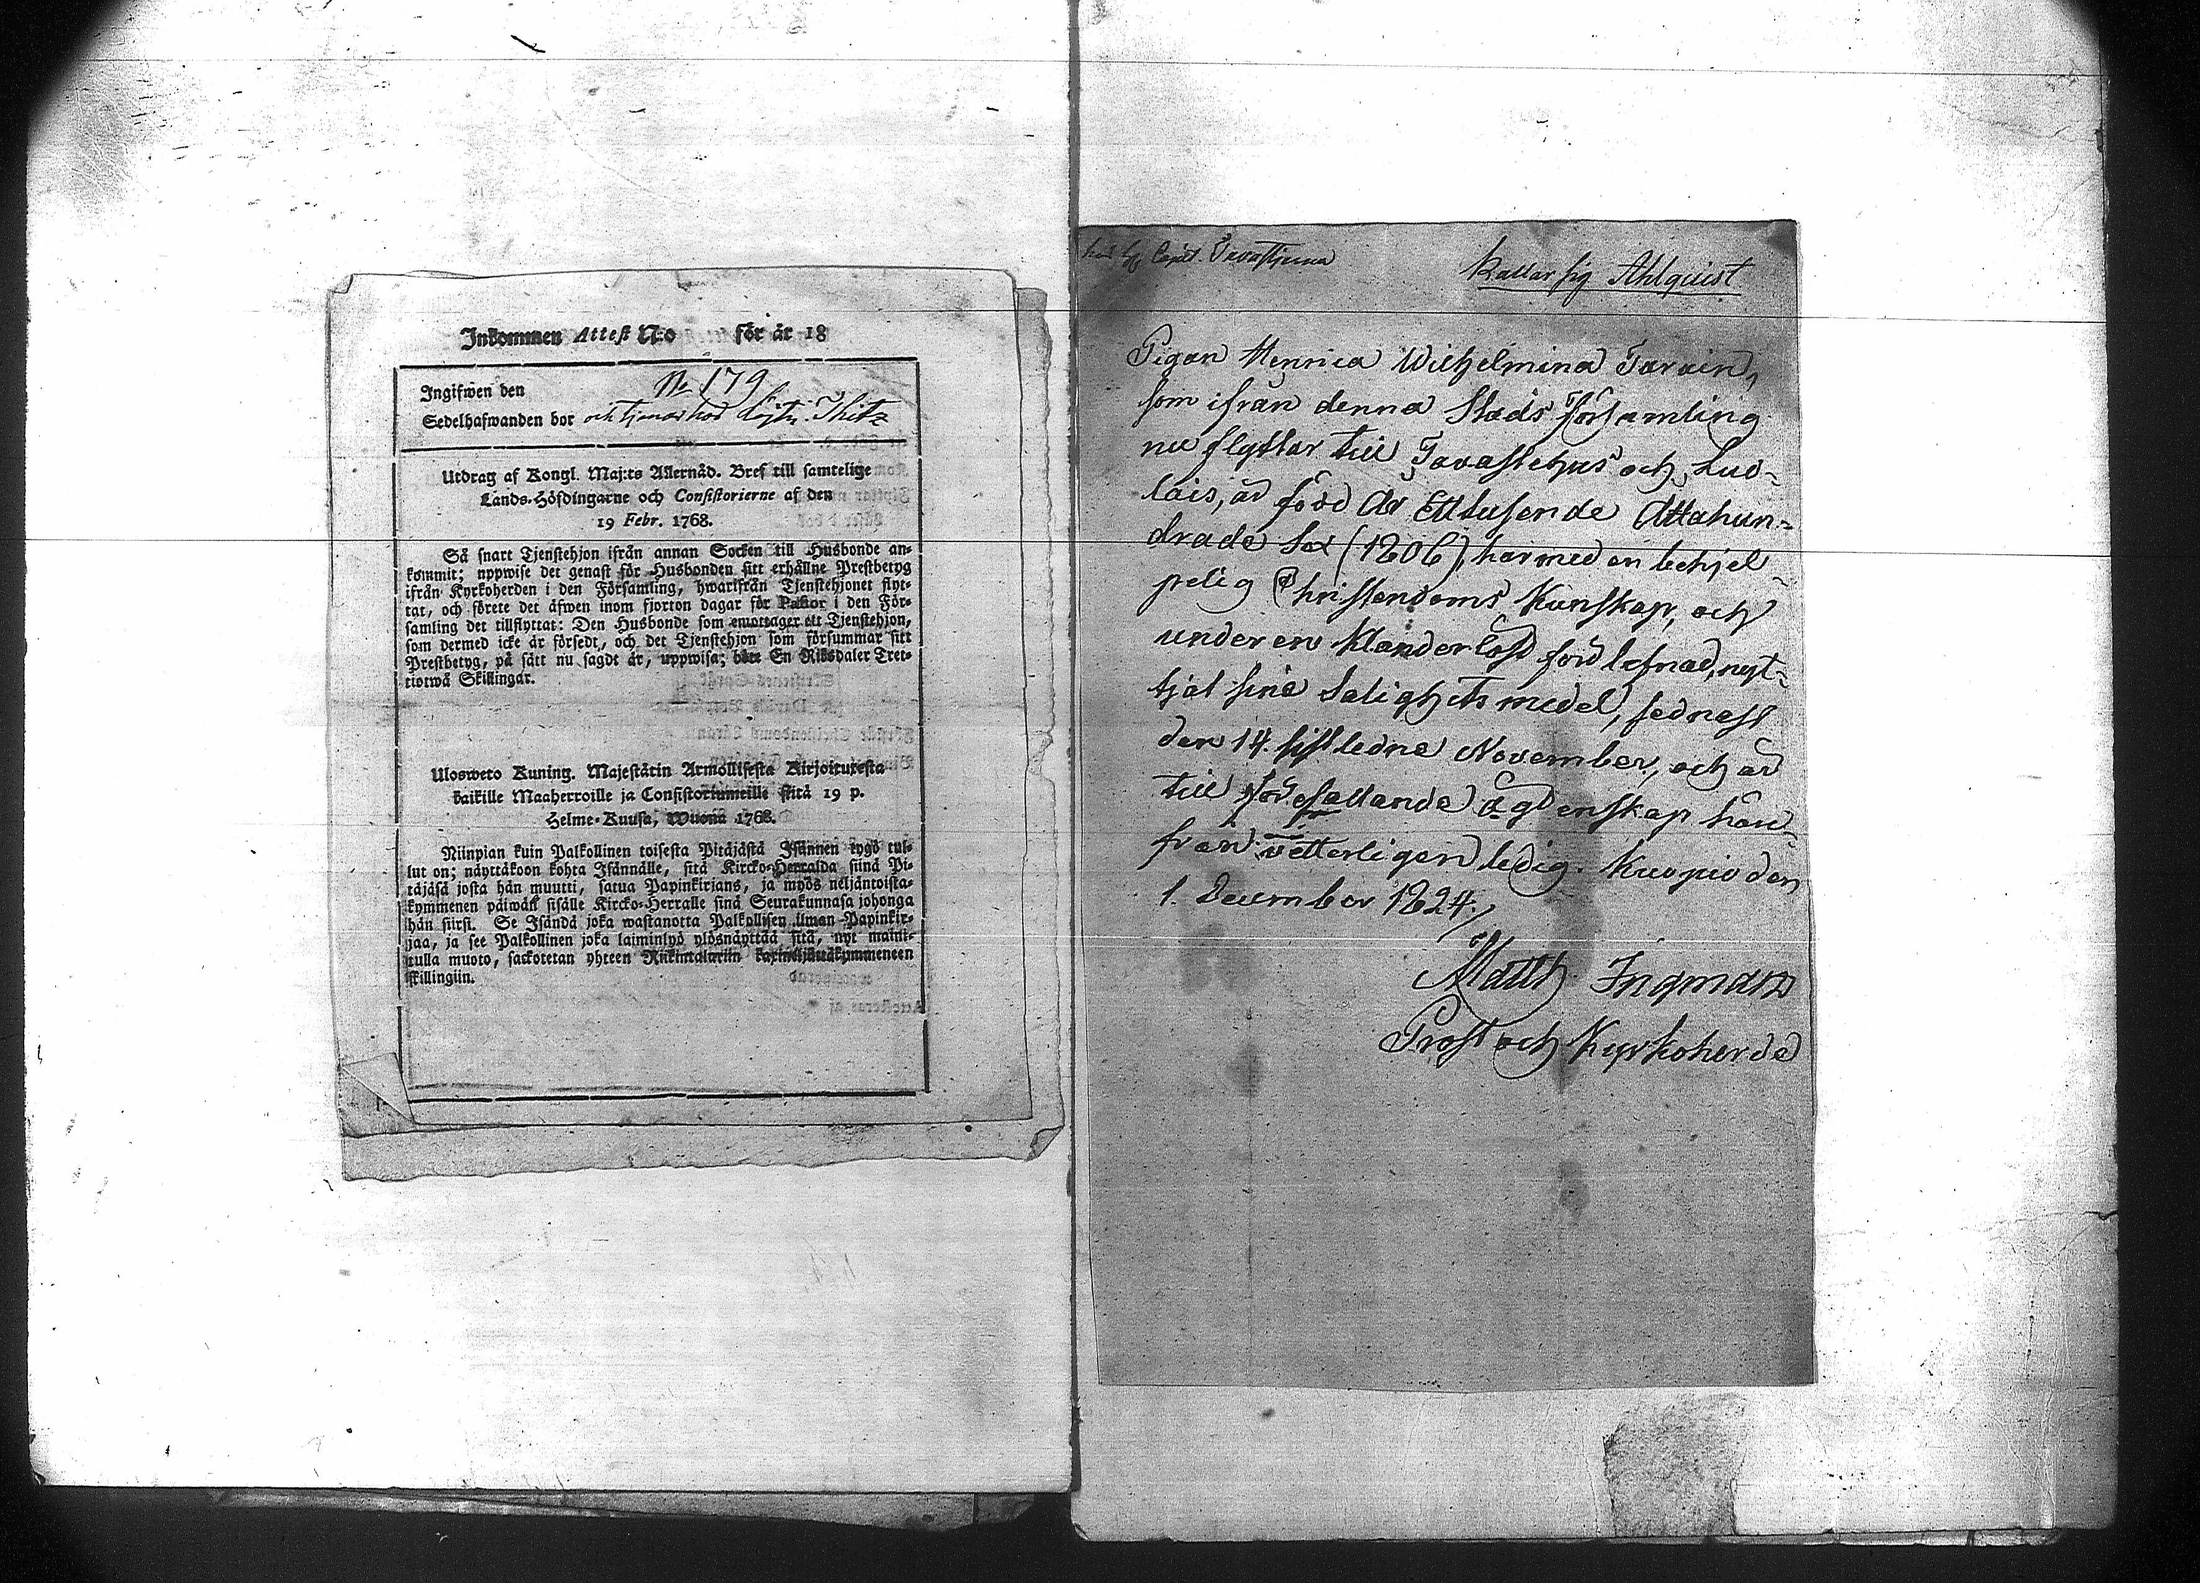 Inkommen Attest N:o för år 18
Ingifwen den No 179
Sedelhafwanden bor och tjenar hos Löjtn. Thitz
Utdrag af Kongl. Maj:ts Allernåd. Bref till samtelige
Lands-Höfdingarne och Consistorierne af den
19 Febr. 1768.
Så snart Tjenstehjon ifrån annan Socken till Husbonde an-
kommit; uppwise det genast för Husbonden sitt erhållne Prestbetyg
ifrån Kyrkoherden i den Församling, hwarifrån Tjenstehjonet flyt-
tat, och förete det äfwen inom fjorton dagar för Pastor i den För-
samling det tillflyttat: Den Husbonde som emottager ett Tjenstehjon,
som dermed icke är försedt, och det Tjenstehjon som försummar sitt
Prestbetyg, på sätt nu sagdt är, uppwisa; böte En Riksdaler Tret-
tiotwå Skillingar.
Ulosweto Kuning. Majestätin Armollisesta Kirjoituxesta
kaikille Maaherroille ja Consistoriumeille siitä 19 p.
Helme-Kuusa, Wuonna 1768.
Niinpian kuin Palkollinen toisesta Pitäjästä Isännen tygö tul-
lut on; näyttäkoon kohta Isännälle, sitä Kircko-Herralda siinä Pi-
täjäsä josta hän muutti, satua Papinkirjans, ja myös neljäntoista-
kymmenen päiwän sisälle Kircko-Herralle siinä Seurakunnasa johonga
hän siirsi. Se Isändä joka wastanotta Palkollisen ilman Papinkir-
jaa, ja see Palkollinen joka laiminlyö ylösnäyttää sitä, nyt maini-
tulla muoto, sackotetan yhteen Riikintaleriin kaxineljättäkymmeneen
skillingiin.
hos H. Capit. Tavastjerna
kallar sig Ahlquist
Pigan Henrica Wilhelmina Tarvain,
som ifrån denna Stads Församling
nu flyttar till Tavastehus och Luo-
lais, är född År Ettusende Åttahun-
drade Sex (1806), har med en behjel-
pelig Christendoms Kunskap, och
under en Klanderlöst förd lefnad, nyt-
tjat sina Salighets medel, sednast
den 14. sistledne November, och är
till förefallande ägtenskap häri-
från vetterligen ledig. Kuopio den
1. December 1824.
Matth. Ingman
Prost och Kyrkoherde